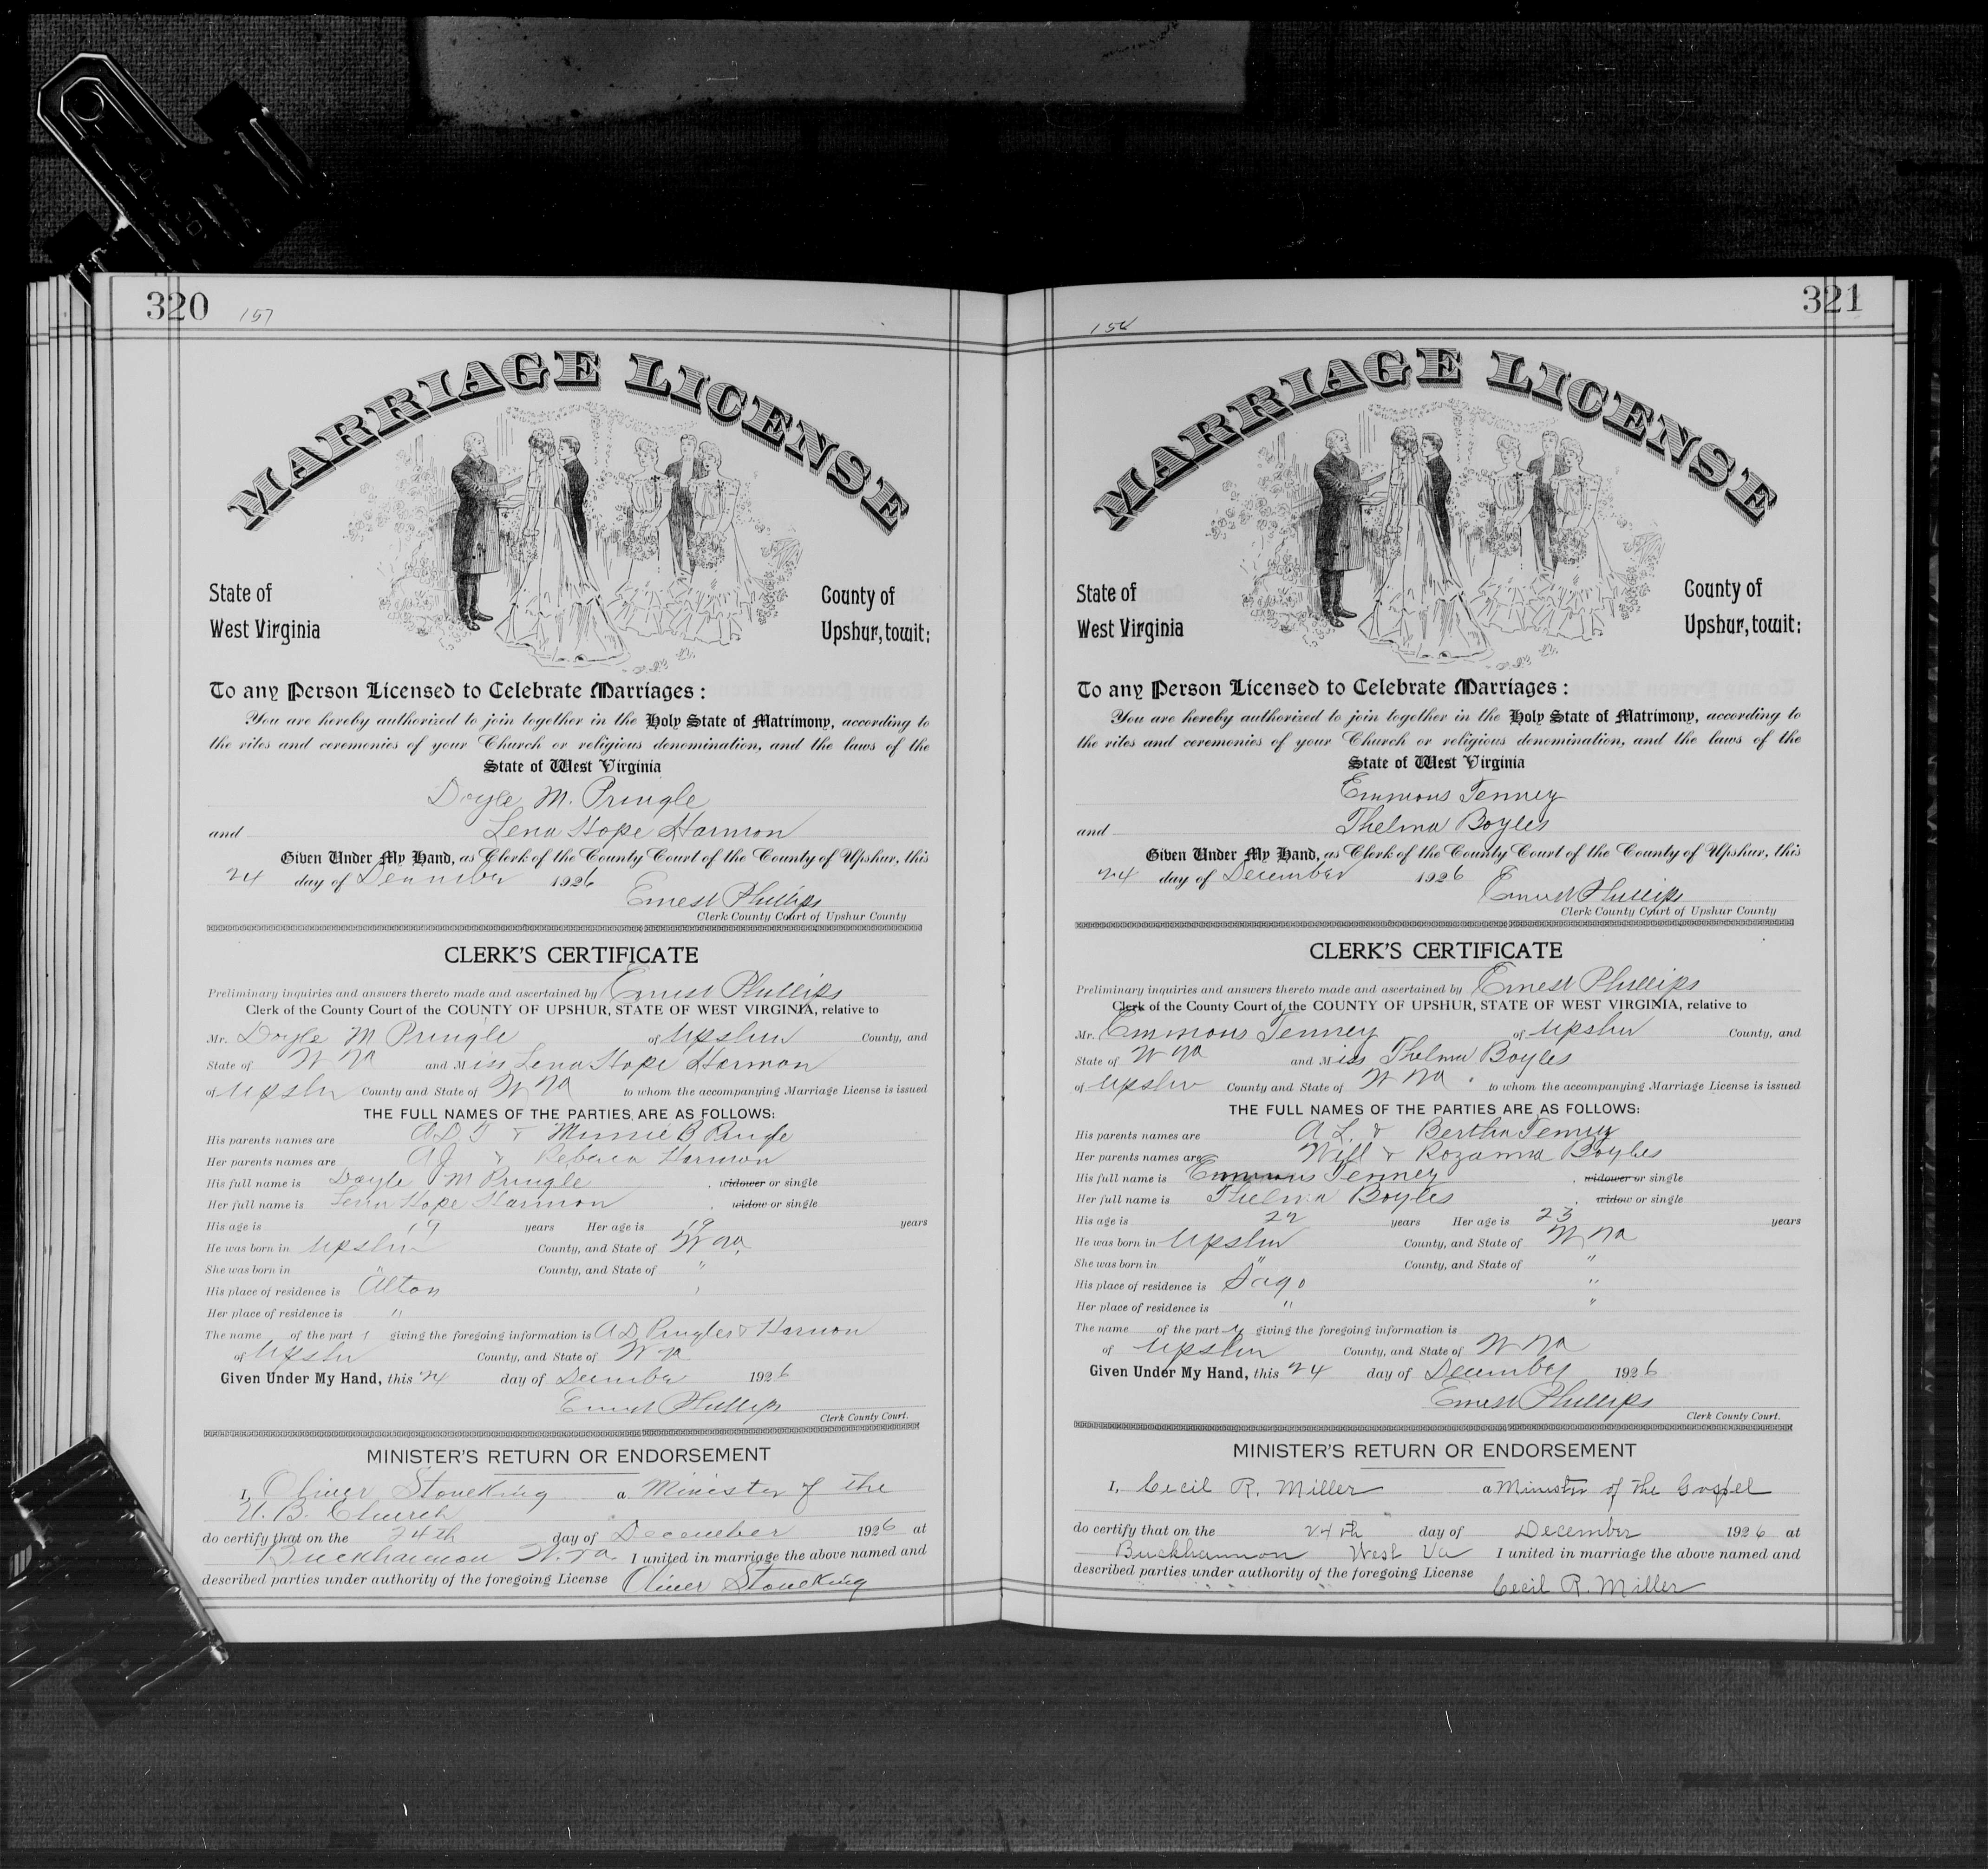 320 157
MARRIAGE LICENSE
State of
West Virginia
County of
Upshur, towit:
To any Person Licensed to Celebrate Marriages:
You are hereby authorized to join together in the Holy State of Matrimony, according to
the rites and ceremonies of your Church or religious denomination, and the laws of the
State of West Virginia
Doyle M. Pringle
and Lena Hope Harmon
Given Under My Hand, as Clerk of the County Court of the County of Upshur, this
24 day of December 1926
Ernest Phillips
Clerk County Court of Upshur County
CLERK'S CERTIFICATE
Preliminary inquiries and answers thereto made and ascertained by Ernest Phillips
Clerk of the County Court of the COUNTY OF UPSHUR, STATE OF WEST VIRGINIA, relative to
Mr. Doyle M Pringle of Upshur County, and
State of W Va and Miss Lena Hope Harmon
of Upshur County and State of W Va to whom the accompanying Marriage License is issued
THE FULL NAMES OF THE PARTIES ARE AS FOLLOWS:
His parents names are & Minnie B Pringle
Her parents names are A J & Rebecca Harmon
His full name is Doyle M Pringle . widower or single
Her full name is Lena Hope Harmon . widow or single
His age is 19 years Her age is 19 years
He was born in Upshur County, and State of W Va
She was born in " County, and State of "
His place of residence is Alton
Her place of residence is "
The name of the part giving the foregoing information is A D Pringle & Harmon
of Upshur County, and State of W Va
Given Under My Hand, this 24 day of December 1926
Ernest Phillips
Clerk County Court.
MINISTER'S RETURN OR ENDORSEMENT
I, Oliver Stoneking a Minister of the
U. B. Church
do certify that on the 24th day of December 1926 at
Buckhannon W. Va. I united in marriage the above named and
described parties under authority of the foregoing License Oliver Stoneking
158 321
MARRIAGE LICENSE
State of
West Virginia
County of
Upshur, towit:
To any Person Licensed to Celebrate Marriages:
You are hereby authorized to join together in the Holy State of Matrimony, according to
the rites and ceremonies of your Church or religious denomination, and the laws of the
State of West Virginia
Emmons Tenney
and Thelma Boyles
Given Under My Hand, as Clerk of the County Court of the County of Upshur, this
24 day of December 1926
Ernest Phillips
Clerk County Court of Upshur County
CLERK'S CERTIFICATE
Preliminary inquiries and answers thereto made and ascertained by Ernest Phillips
Clerk of the County Court of the COUNTY OF UPSHUR, STATE OF WEST VIRGINIA, relative to
Mr. Emmons Tenney of Upshur County, and
State of W Va and Miss Thelma Boyles
of Upshur County and State of W Va to whom the accompanying Marriage License is issued
THE FULL NAMES OF THE PARTIES ARE AS FOLLOWS:
His parents names are A L. & Bertha Tenney
Her parents names are Will & Rozanna Boyles
His full name is Emmons Tenney . widower or single
Her full name is Thelma Boyles . widow or single
His age is 22 years Her age is 23 years
He was born in Upshur County, and State of W Va
She was born in " County, and State of "
His place of residence is Sago "
Her place of residence is " "
The name of the party giving the foregoing information is
of Upshur County, and State of W Va
Given Under My Hand, this 24 day of December 1926
Ernest Phillips
Clerk County Court.
MINISTER'S RETURN OR ENDORSEMENT
I, Cecil R. Miller a Minister of the Gospel
do certify that on the 24th day of December 1926 at
Buckhannon West Va I united in marriage the above named and
described parties under authority of the foregoing License
Cecil R. Miller